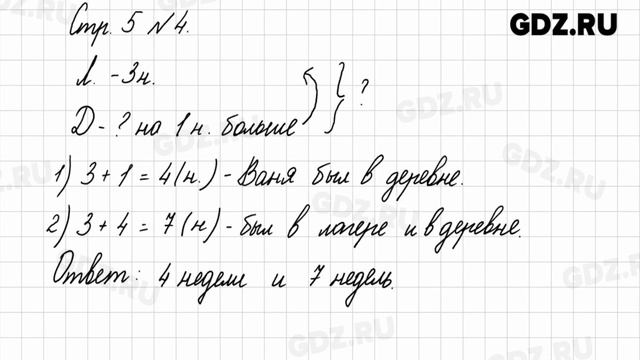 Стр. 5 №4.
GDZ.RU
Л. - 3н.
Д - ? на 1 н. больше } ?
1) 3 + 1 = 4 (н.) - Ваня был в деревне.
2) 3 + 4 = 7 (н) - был в лагере и в деревне.
Ответ: 4 недели и 7 недель.
GDZ.RU
GDZ.RU
GDZ.RU
GDZ.RU
GDZ.RU
GDZ.RU